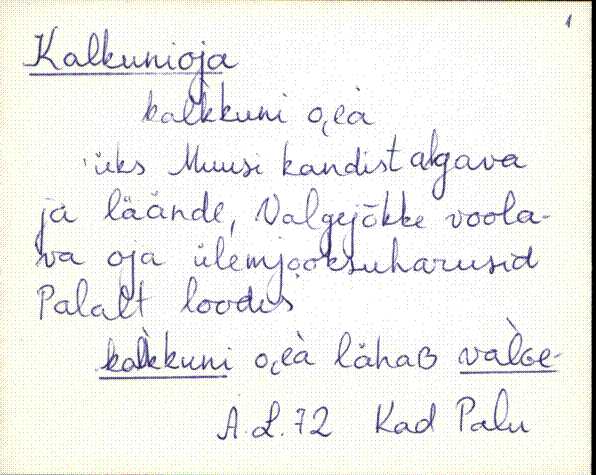 1
Kalkunioja
kal̀kkuni o̬i̯à
üks Muusi kandist algava
ja läände, Valgejõkke voola-
va oja ülemjooksuharusid
Palalt loodes
kal̀kkuni o̬i̯à lähàB val̀Ge-
A.L.72 Kad Palu